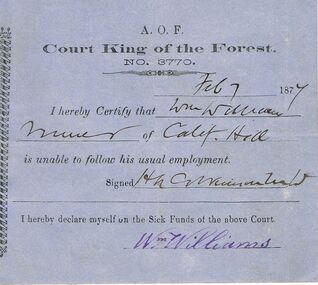 A. O. F.
Court King of the Forest.
NO. 3770.
Feb 7 1877
I hereby Certify that Wm Williams
Miner of Calif. Hill
is unable to follow his usual employment.
Signed
I hereby declare myself on the Sick Funds of the above Court.
Wm Williams